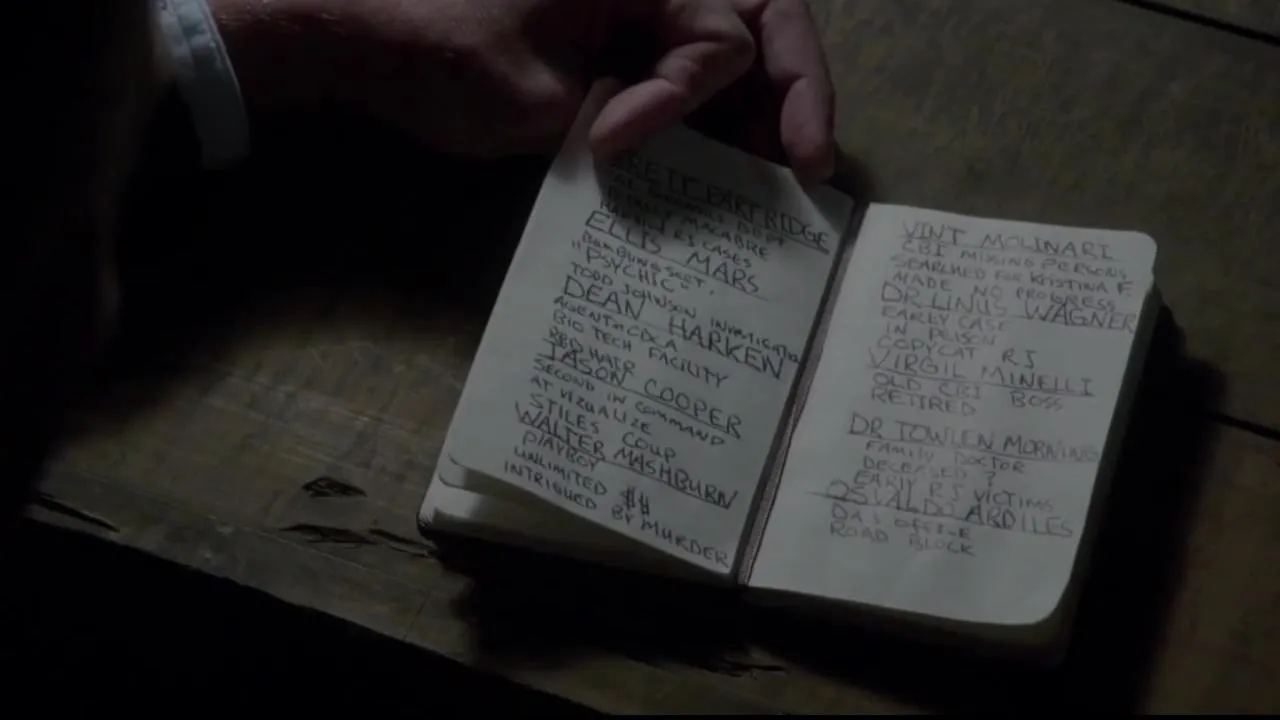 BRETT PARTRIDGE
TOTALLY MACABRE
RJ CASES
ELLIS MARS
"PSYCHIC"
TODD JOHNSON INVESTIGATION
DEAN HARKEN
BIO TECH FACILITY
RED HAIR
JASON COOPER
SECOND IN COMMAND
AT VIZUALIZE
STILES COUP
WALTER MASHBURN
PLAYBOY
UNLIMITED $$
INTRIGUED BY MURDER
VINT MOLINARI
CBI MISSING PERSONS
SEARCHED FOR KRISTINA F.
MADE NO PROGRESS
DR LINUS WAGNER
EARLY CASE
IN PRISON
COPYCAT RJ
VIRGIL MINELLI
OLD CBI BOSS
RETIRED
DR TOWLEN MORNING
FAMILY DOCTOR
DECEASED?
EARLY RJ VICTIMS
OSVALDO ARDILES
DA'S OFFICE
ROAD BLOCK